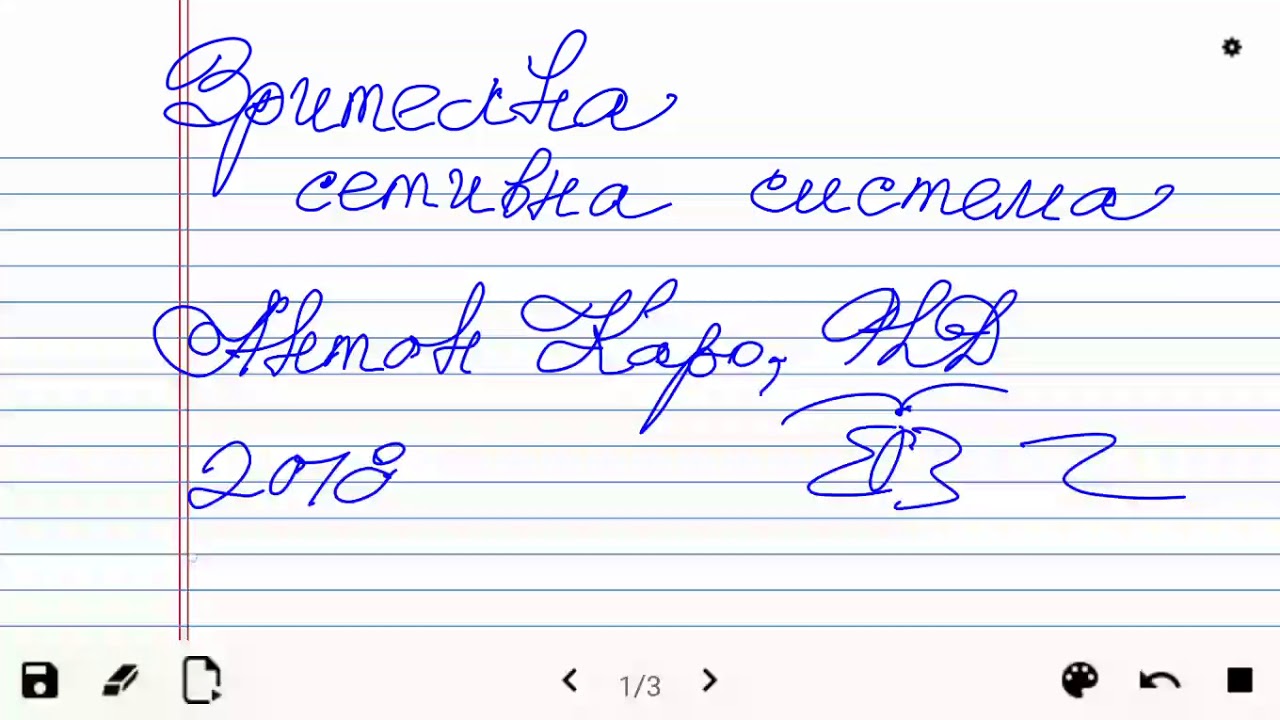 Зрителна
сетивна система
Антон Каро, PhD
2018
1/3